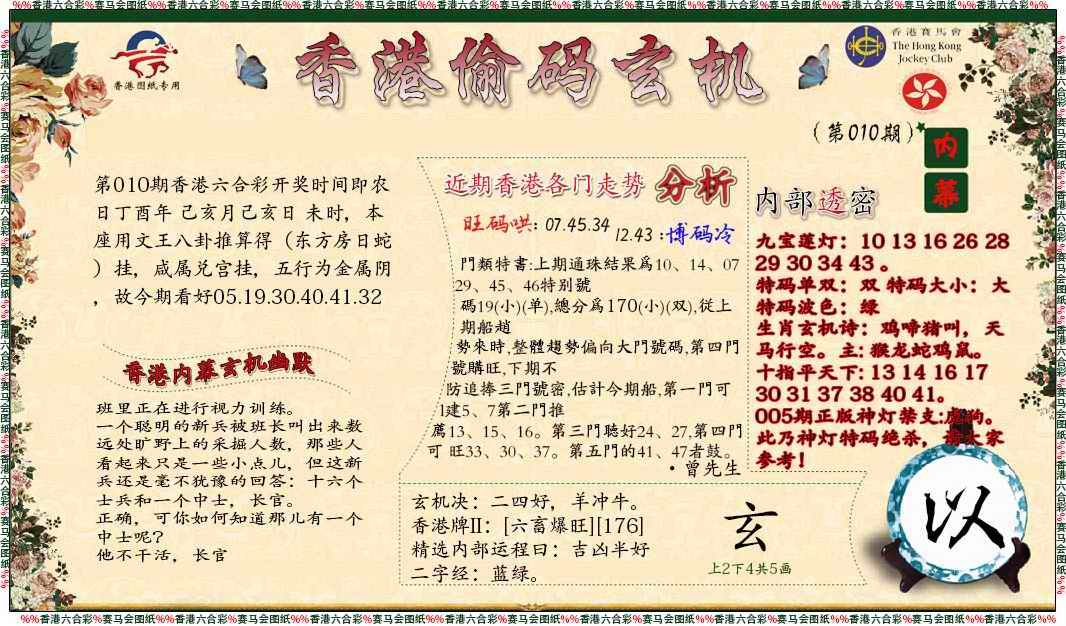 %%香港六合彩%赛马会图纸%%香港六合彩%赛马会图纸%%香港六合彩%赛马会图纸%%香港六合彩%赛马会图纸%%香港六合彩%赛马会图纸%%香港六合彩%赛马会图纸%%香港六合彩%赛马会图纸%%香港六合彩%%
香港图纸专用
香港偷码玄机
香港賽馬會
The Hong Kong
Jockey Club
(第010期)
内
幕
第010期香港六合彩开奖时间即农
日丁酉年 己亥月己亥日 未时，本
座用文王八卦推算得（东方房日蛇
）挂，咸属兑宫挂，五行为金属阴
，故今期看好05.19.30.40.41.32
香港内幕玄机幽默
班里正在进行视力训练。
一个聪明的新兵被班长叫出来数
远处旷野上的采掘人数，那些人
看起来只是一些小点儿，但这新
兵还是毫不犹豫的回答：十六个
士兵和一个中士，长官。
正确，可你如何知道那儿有一个
中士呢？
他不干活，长官
近期香港各门走势 分析
旺码哄：07.45.34
12.43：博码冷
門類特書:上期通珠結果爲10、14、07
29、45、46特别號
碼19(小)(单),總分爲170(小)(双),從上
期船趙
勢來時,整體趨勢偏向大門號碼,第四門
號購旺,下期不
防追捧三門號密,估计今期船,第一門可
1建5、7第二門推
薦13、15、16。第三門聽好24、27,第四門
可 旺33、30、37。第五門的41、47者鼓。
・曾先生
内部透密
九宝莲灯：10 13 16 26 28
29 30 34 43 。
特码单双：双 特码大小：大
特码波色：绿
生肖玄机诗：鸡啼猪叫，天
马行空。主: 猴龙蛇鸡鼠。
十指平天下: 13 14 16 17
30 31 37 38 40 41。
005期正版神灯禁支:虎狗。
此乃神灯特码绝杀，大家
参考！
玄机决：二四好，羊冲牛。
香港牌II：[六畜爆旺][176]
精选内部运程曰：吉凶半好
二字经：蓝绿。
玄
上2下4共5画
以
%%香港六合彩%赛马会图纸%%香港六合彩%赛马会图纸%%香港六合彩%赛马会图纸%%香港六合彩%赛马会图纸%%香港六合彩%赛马会图纸%%香港六合彩%赛马会图纸%%香港六合彩%赛马会图纸%%香港六合彩%%